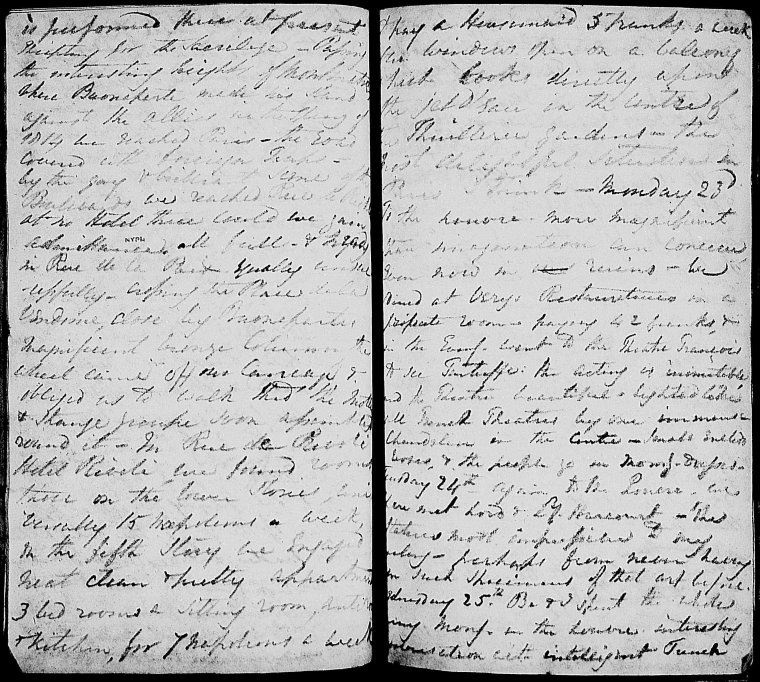 is performed there at present
for the Sacrilege - Passing
the interesting heights of
where Buonaparte made his stand
against the allies in the Spring of
1814 we reached Paris - the Road
covered with foreign Troops -
by the gay & brilliant Scene of the
Boulevards we reached Rue
at no Hotel there could we gain
admittance, all full - &
in Rue de la Paix equally unsuc
=cessfully - crossing the Place de la
Vendome, close by Buonapartes
magnificent bronze Column the
wheel came off our Carriage &
obliged us to walk thro' the
& strange groupe soon assembled
round it - In Rue de Rivoli
Hotel Rivoli we found rooms
those on the lower Stories, were
usually 15 Napoleons a week,
on the fifth Story we engaged
neat clean & pretty appartments
3 bed rooms a sitting room,
& Kitchen, for 7 Napoleons a week
& pay a Housemaid 5 franks a week
Our windows open on a balcony
which looks directly upon
the jet d'eau in the centre of
the Thuilleries gardens - the
most delightful situation in
Paris I think - Monday 23d
To the Louvre - more magnificent
than imagination can conceive
Even now in its ruins - We
dined at Verys Restaurateurs in a
private room - paying 42 franks, &
in the Eveng. went to the Theatre Francois
to see Tartuffe: the acting is inimitable
and the Theatre beautiful - lighted like
all French Theatres by one immense
Chandelier in the Centre - small
Boxes, & the people go in Morng. Dresses -
Tuesday 24th again to the Louvre - we
there met Lord & Ly. Harcourt - The
Statues most impressive to my
feeling - perhaps from never having
seen such Specimens of that art before.
Wednesday 25th. & I spent the whole
Morng. in the Louvre, interesting
conversation with intelligent French